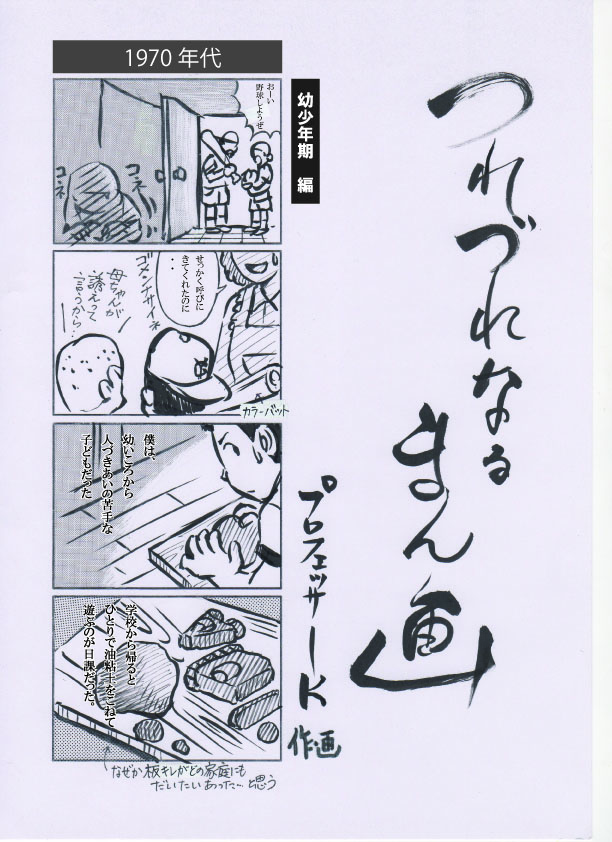 つれづれなる
まん画
プロフェッサーK
作画
幼少年期 編
1970 年代
おーい
野球しようぜ
コネ
コネ
せっかく呼びに
きてくれたのに
・・
ゴメンナサイネ
母ちゃんが
誘えって
言うから・
カラーバット
僕は、
幼いころから
人づきあいの苦手な
子どもだった
学校から帰ると
ひとりで油粘土をこねて
遊ぶのが日課だった。
なぜか板キレがどの家庭にも
だいたいあった…と思う